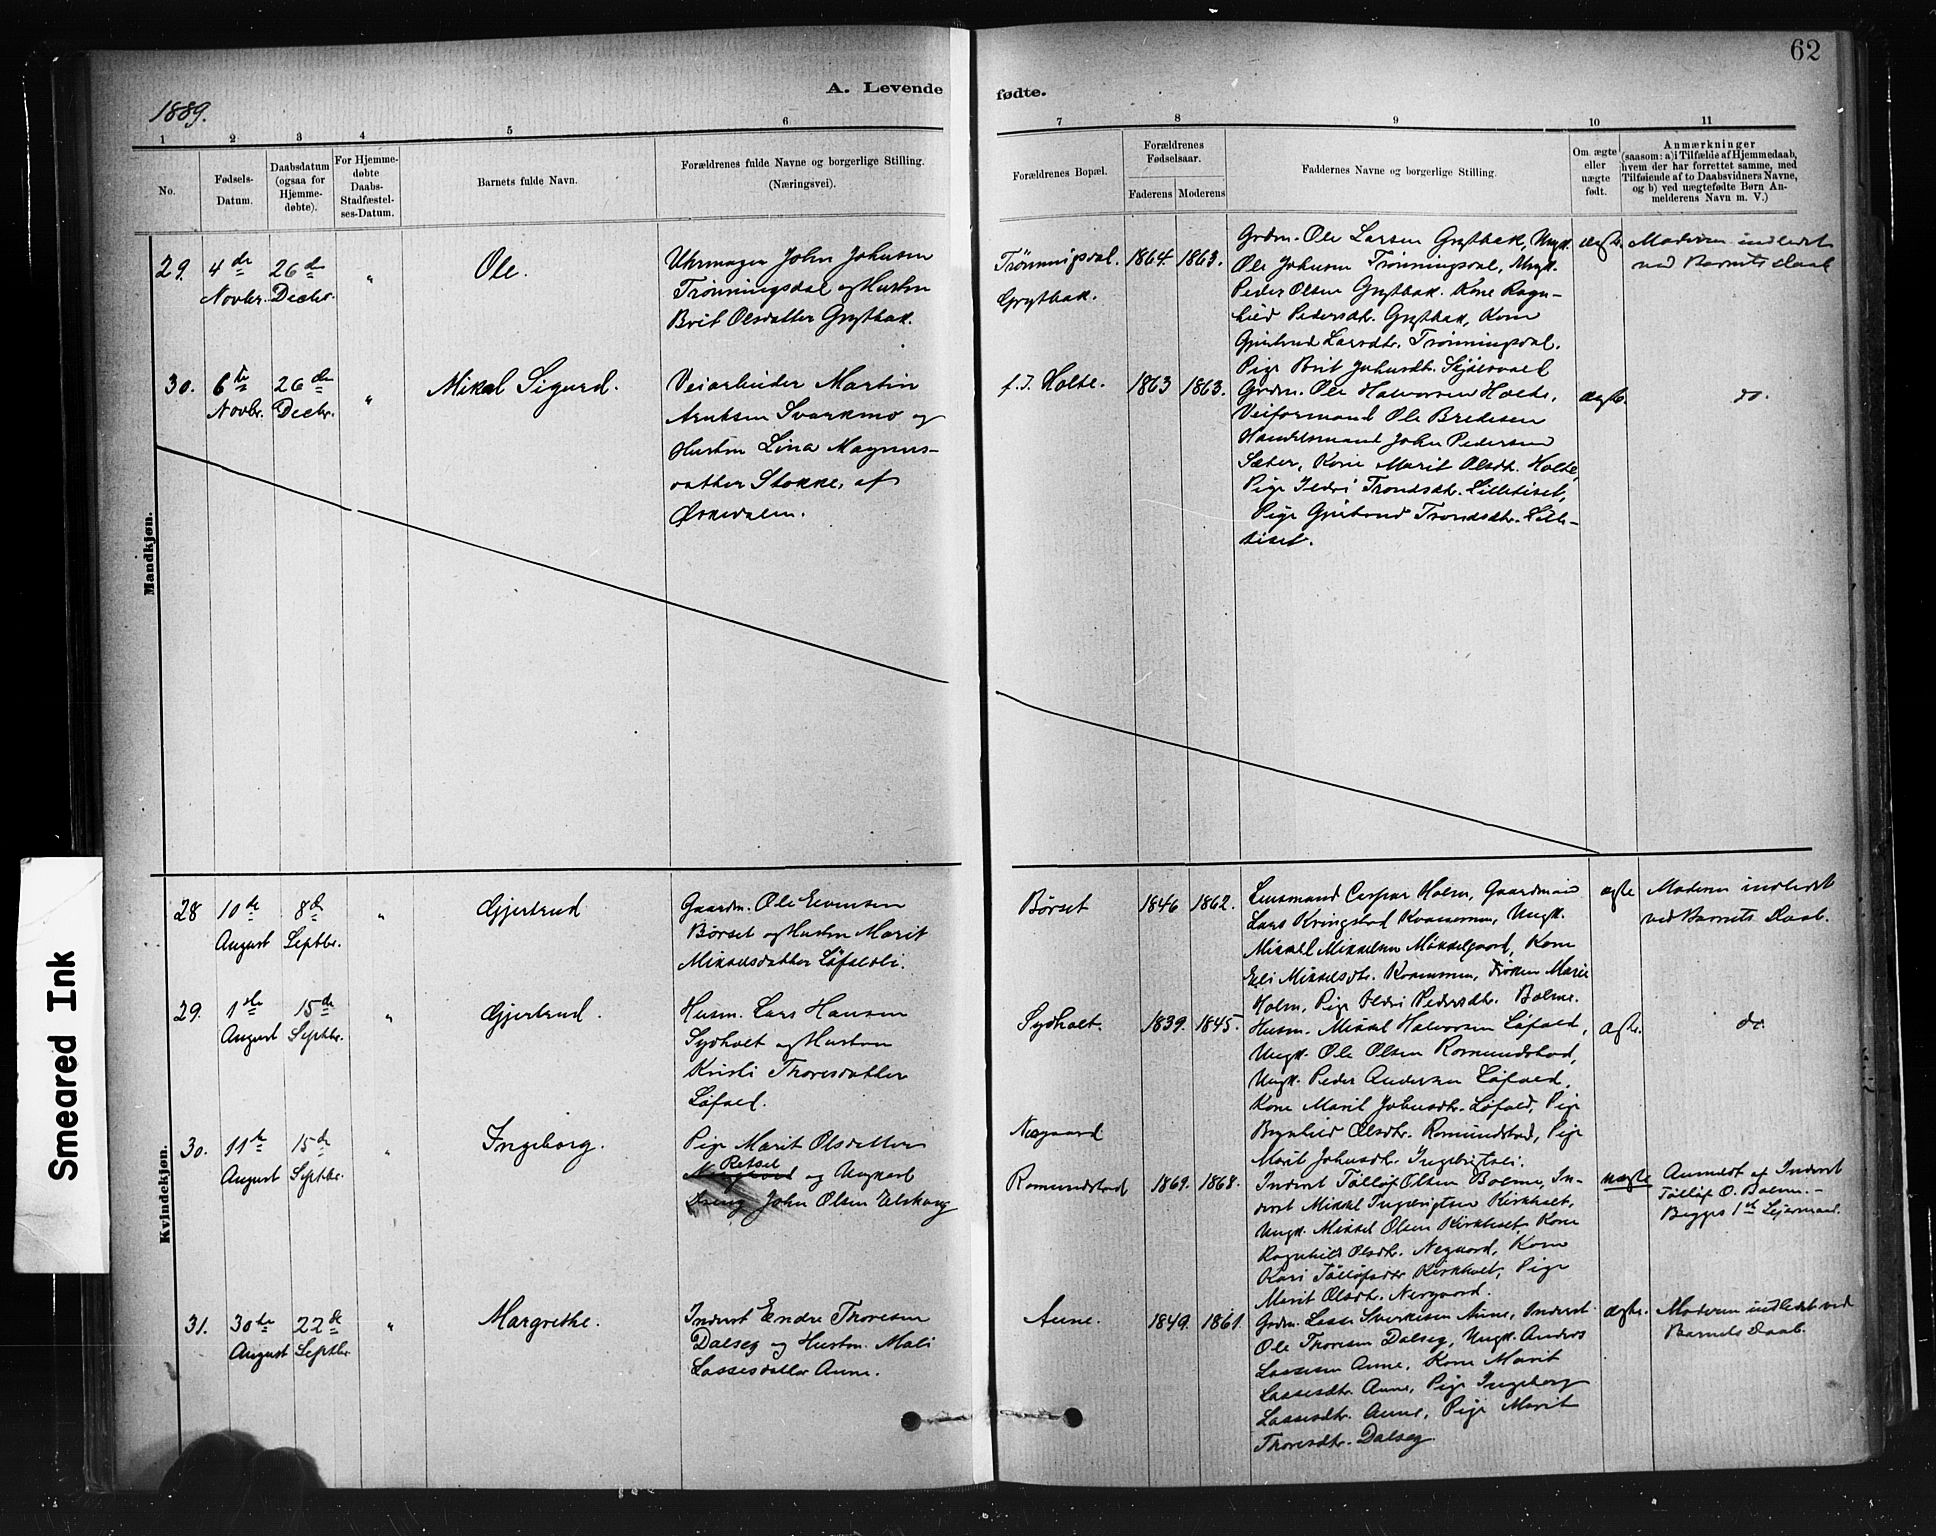 62
1889.
A. Levende
fødte.
1 2 3 4 5 6 7 8 9 10 11
No.
Fødsels-
Datum.
Daabsdatum
(ogsaa for
Hjemme-
døbte).
For Hjemme-
døbte
Daabs-
Stadfæstel-
ses-Datum.
Barnets fulde Navn.
Forældrenes fulde Navne og borgerlige Stilling.
(Næringsvei).
Forældrenes Bopæl.
Forældrenes
Fødselsaar.
Faderens Moderens
Faddernes Navne og borgerlige Stilling.
Om ægte
eller
uægte
født.
Anmærkninger
(saasom: a) i Tilfælde af Hjemmedaab,
hvem der har forrettet samme, med
Tilføiende af to Daabsvidners Navne,
og b) ved uægtefødte Børn An-
melderens Navn m. V.)
Mandkjøn.
29. 4de
Novbr.
26de
Decbr.
"
Ole.
Uhrmager John Johnsen
Trønningsdal og Hustru
Brit Olsdatter Grytbak.
Trønningsdal.
Grytbak.
1864. 1863.
Grdm. Ole Larsen Grytbak, Ungk.
Ole Johnsen Trønningsdal, Ungk.
Peder Olsen Grytbak. Kone Ragn-
hild Pedersdtr. Grytbak, Kone
Gjertrud Larsdtr. Trønningsdal.
Pige Brit Johnsdtr.
ægte.
Moderen indledet
ved Barnets Daab
30. 6te
Novbr.
26de
Decbr.
"
Mikal Sigurd.
Veiarbeider Martin
Arntsen Svarkmo og
Hustru Lina Magnus-
datter Stokke, af
Ørkedalen.
f. T. Holte.
1863 1863.
Grdm. Ole Halvorsen Holte,
Veiformand Ole Bredesen
Handelsmand John Pedersen
Sæter, Kone Marit Olsdtr. Holte,
Pige Ildri Trondsdtr. Lilletiset,
Pige Gjertrud Trondsdtr. Lille-
tiset.
ægte.
do.
Kvindekjøn.
28 10de
August
8de
Septbr.
"
Gjertrud
Gaardm. Ole Evensen
Børset og Hustru Marit
Mikkelsdatter Løfaldli.
Børset
1846 1862.
Lensmand Caspar Holm, Gaardmand
Lars Kringstad Kvammen, Ungk.
Mikkel Mikkelsen Mikkelgaard, Kone
Eli Mikkelsdtr. Kvammen, Frøken Marie
Holm, Pige Ildri Pedersdtr. Bolme.
ægte
Moderen indledet
ved Barnets Daab.
29. 1ste
August
15de
Septbr.
"
Gjertrud.
Husm. Lars Hansen
Sydholt og Hustru
Kristi Thoresdatter
Løfald.
Sydholt.
1839. 1845.
Husm. Mikkel Halvorsen Løfald,
Ungk. Ole Olsen Romundstad,
Ungk. Peder Andersen Løfald,
Kone Marit Johnsdtr. Løfald, Pige
Ragnhild Olsdtr. Romundstad, Pige
Marit Johnsdtr. Ingebrigtsli.
ægte.
do.
30. 11te
August
15de
Septbr.
"
Ingeborg.
Pige Marit Olsdatter
Retsel
og Ungkarl
Dreng John Olsen Elshaug
Negaard
Romundstad
1869. 1868.
Inderst Tølløf Olsen Bolme, In-
derst Mikkel Ingebrigtsen Kirkholt,
Ungk. Mikkel Olsen Kirkholt, Kone
Ragnhild Olsdtr. Negaard, Kone
Kari Tølløfsdtr. Kirkholt, Pige
Marit Olsdtr. Nergaard.
uægte
Anmeldt af Inderst
Tølløf O. Bolme.-
Begges 1ste Leiermaal.
31. 30te
August
22de
Septbr
"
Margrethe.
Inderst Endre Thoresen
Dalseg og Hustru Mali
Lassesdatter Aune.
Aune.
1849. 1861.
Grdm. Lasse Sverkesen Aune, Inderst
Ole Thoresen Dalseg, Ungk. Anders
Lassesen Aune, Kone Marit
Lassesdtr. Aune, Pige Ingeborg
Lassesdtr. Aune, Pige Marit
Thoresdtr. Dalseg.
ægte.
Moderen indledet ved
Barnets Daab.
Smeared Ink